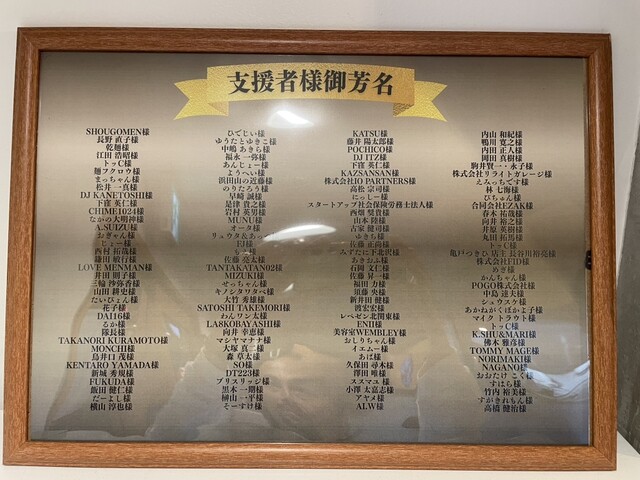 支援者様御芳名
SHOUGOMEN様
長野 直子様
乾麺様
江田 浩昭様
トッC様
麺フクロウ様
まっちゃん様
松井 一真様
DJ KANETOSHI様
下窪 英仁様
CHIME1024様
ながの大明神様
A.SUIZU様
おぎゃん様
じょー様
西村 拓哉様
鎌田 敏行様
LOVE MENMAN様
井田 則子様
三輪 紗弥香様
山田 耕史様
たいぴょん様
花子様
DAI16様
るか様
隊長様
TAKANORI KURAMOTO様
MONCHI様
鳥井口 茂様
KENTARO YAMADA様
新城 秀規様
FUKUDA様
飯田 健仁様
だーよし様
横山 淳也様
ひでじい様
ゆうたとゆきこ様
中嶋 あきら様
福永 一弥様
あんじょー様
ようへい様
浜田山の近藤様
のりたろう様
早崎 誠様
是津 貴之様
岩村 英男様
MUNU様
オータ様
リュウタ&あっ
EJ様
佐藤 亮太様
TANTAKATAN02様
MIZUKI様
せっちゃん様
キノシタワタベ様
大竹 秀雄様
SATOSHI TAKEMORI様
わんワン太様
LA8KOBAYASHI様
向井 幸恵様
マシヤマナナ様
大塚 真二様
森 草太様
SO様
DT223様
ブリスリッジ様
黒木 一期様
榊山 一平様
そーすけ様
KATSU様
藤井 陽太郎様
POCHICO様
DJ ITZ様
下窪 英仁様
KAZSANSAN様
株式会社IO PARTNERS様
高松 宗司様
にっしー様
スタートアップ社会保険労務士法人様
西畑 奨貴様
山本 陸様
古家 健司様
ゆきち様
佐藤 正尚様
みずたに下北沢様
あきおふ様
石岡 文仁様
佐藤 昇一様
福田 力様
須藤 央様
新井田 健様
渡宏宏様
レペゼン北関東様
ENII様
美容室WEMBLEY様
おしりちゃん様
イエムー様
あぱ様
久保田 尋木様
澤田 唯様
ススマユ 様
小澤 太嘉志様
アヤメ様
AI.W様
内山 和紀様
鴨川 寛之様
内田 正人様
岡田 真樹様
駒井賢一・永子様
株式会社リライトガレージ様
えみっちです様
林 七海様
びちゅん様
合同会社EZAK様
春木 拓哉様
向井 裕之様
井原 英樹様
丸田 拓馬様
トッC様
亀戸つきひ 店主 長谷川裕亮様
株式会社FTD様
めぎ様
かんちゃん様
POGO株式会社様
中島 達夫様
シュウスケ様
あかねがくぼかよ子様
マイク トラウト様
トッC様
KASHU&MARI様
佛木 雅彦様
TOMMY MAGE様
NORIMAKI様
NAGANO様
おおたけ こく様
すはら様
竹内 裕美様
すがきれもん様
高橋 健治様